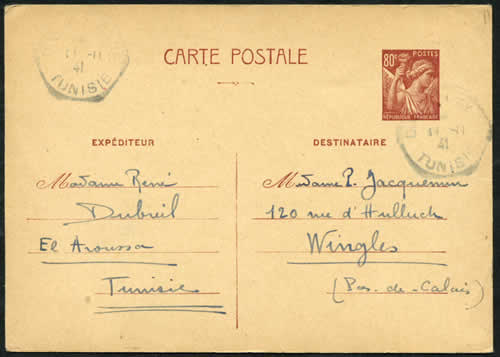 CARTE POSTALE
80c
POSTES
RÉPUBLIQUE FRANÇAISE
41
TUNISIE
41
TUNISIE
EXPÉDITEUR
Madame René
Dubreil
El Aroussa
Tunisie
DESTINATAIRE
Madame P. Jacquemon
120 rue d'Hulluch
Wingles
(Pas-de-Calais)